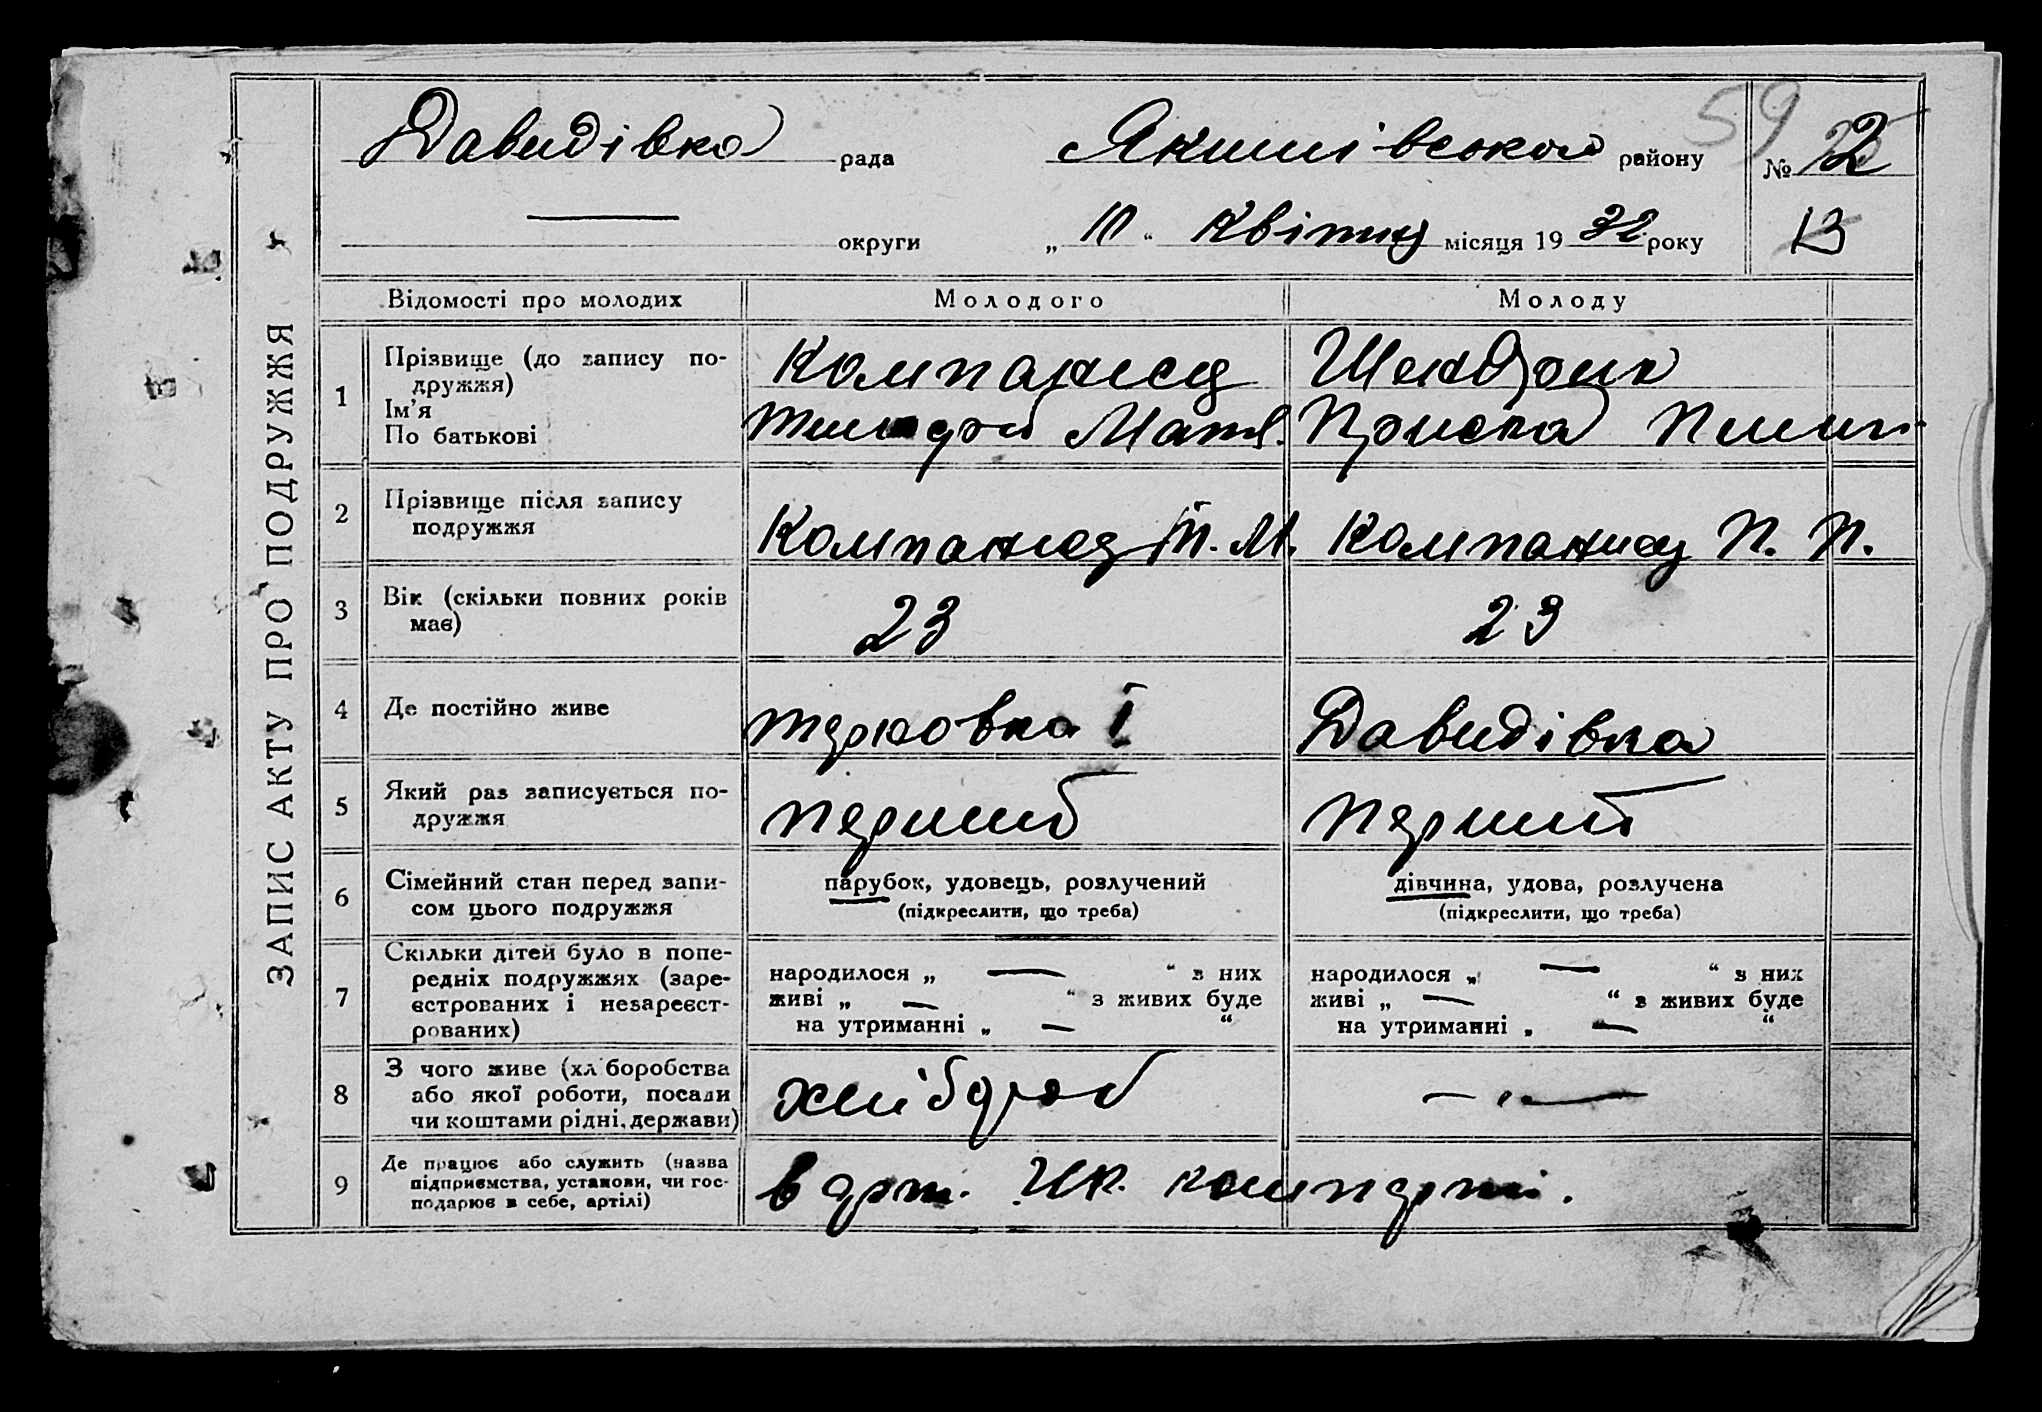 ЗАПИС АКТУ ПРО ПОДРУЖЖЯ
59
Давидівка рада Якимівською району № 2
округи „ 10 “ квітня місяця 1932 року 13
Відомості про молодих Молодого Молоду
1 Прізвище (до запису по-
дружжя)
Ім'я
По батькові
Компаниєц
Мата.
Приска Пилип.
2 Прізвище після запису
подружжя
Компаниєц Т. М. Компаниец П. П.
3 Вік (скільки повних років
має)
23 23
4 Де постійно живе
Давидівка
5 Який раз записується по-
дружжя
перший перший
6 Сімейний стан перед запи-
сом цього подружжя
парубок, удовець, розлучений
(підкреслити, що треба)
дівчина, удова, розлучена
(підкреслити, що треба)
7 Скільки дітей було в попе-
редніх подружжях (заре-
єстрованих і незареєст-
рованих)
народилося „ — “ з них
живі „ — “ з живих буде
на утриманні „ — “
народилося „ — “ з них
живі „ — “ з живих буде
на утриманні „ — “
8 З чого живе (хліборобства
або якої роботи, посади
чи коштами рідні, держави)
хлібороб — „ —
9 Де працює або служить (назва
підприємства, установи, чи гос-
подарює в себе, артілі)
в арт.